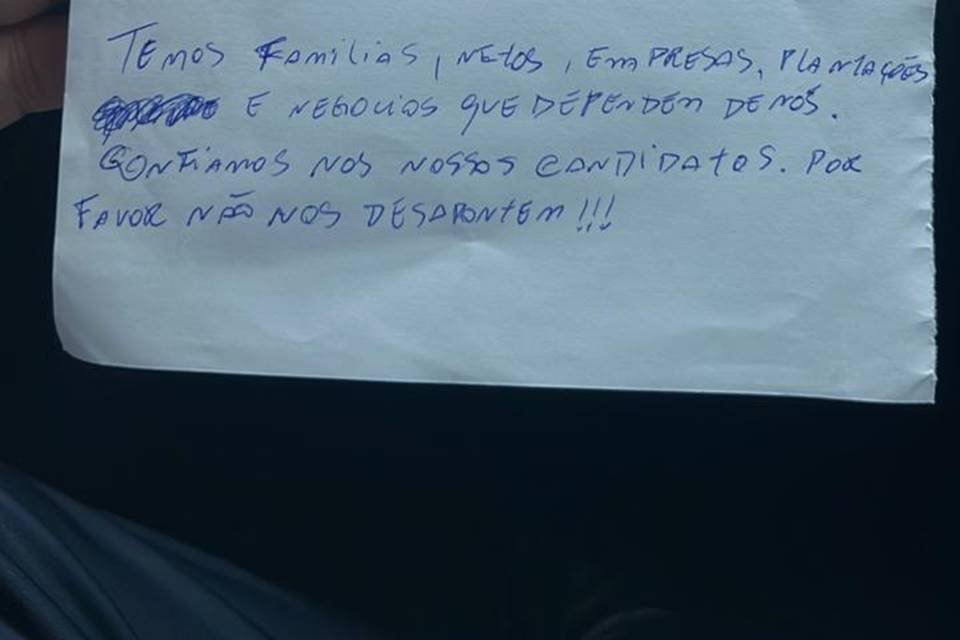 TEMOS FAMILIAS, NETOS, EMPRESAS, PLANTAÇÕES
E NEGOCIOS QUE DEPENDEM DE NÓS.
CONFIAMOS NOS NOSSOS CANDIDATOS. POR
FAVOR NÃO NOS DESAPONTEM!!!